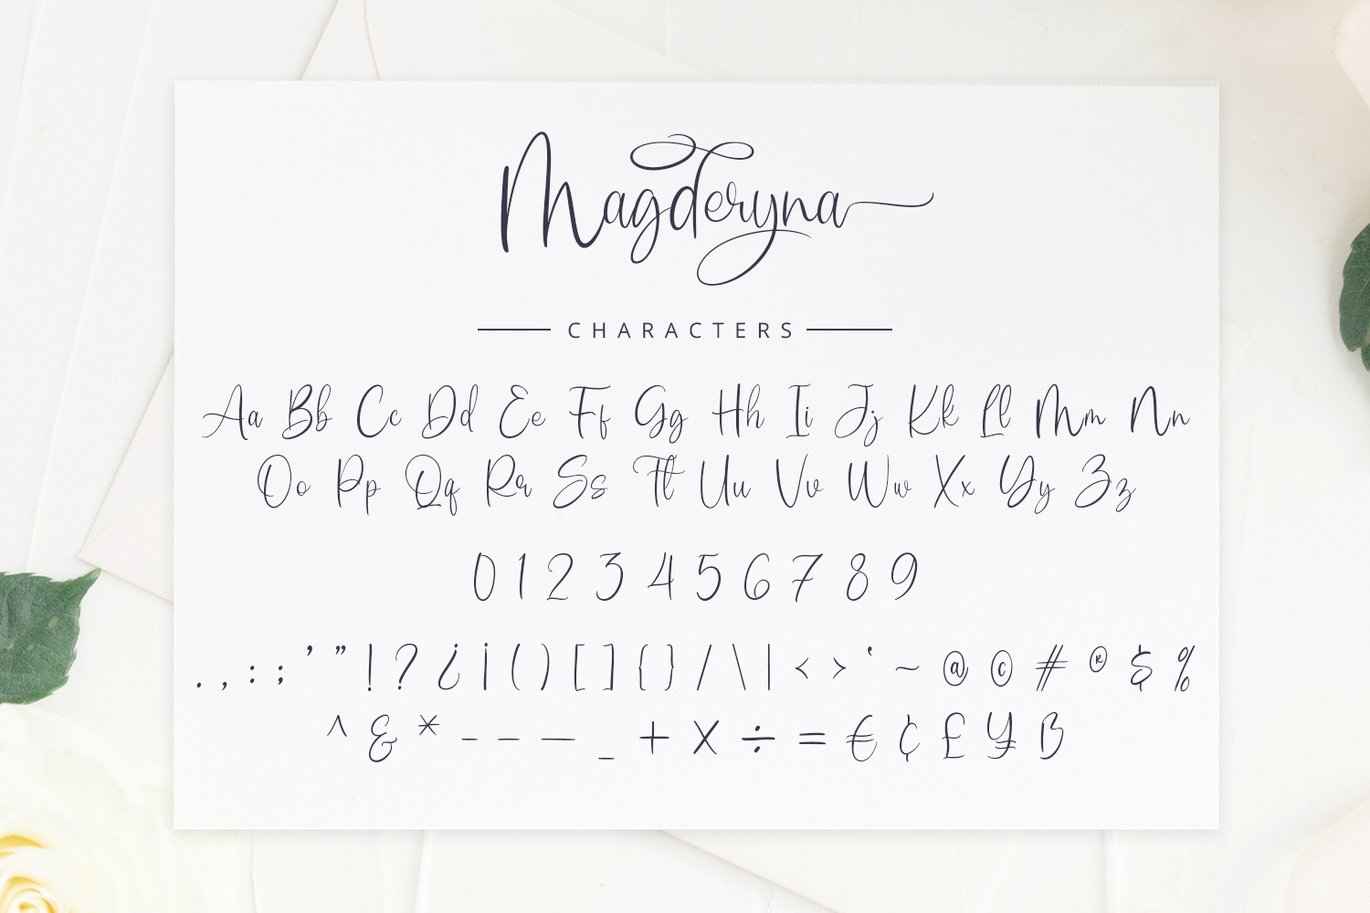 Magderyna
CHARACTERS
Aa Bb Cc Dd Ee Ff Gg Hh Ii Jj Kk Ll Mm Nn
Oo Pp Qq Rr Ss Tt Uu Vv Ww Xx Yy Zz
0 1 2 3 4 5 6 7 8 9
. , : ; ’ ” ! ? ¿ ¡ ( ) [ ] { } / \ | < > ‘ ~ @ © # ® $ %
^ & * - – — _ + × ÷ = € ¢ £ ¥ ß